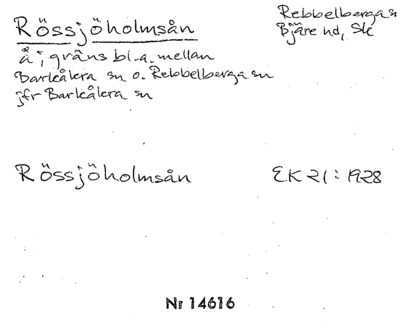 Rössjöholmsån
Rebbelberga sn
Bjäre hd, Sk
å; gräns bl.a. mellan
Barkåkra sn o. Rebbelberga sn
jfr Barkåkra sn
Rössjöholmsån
EK 21: 1928
Nr 14616